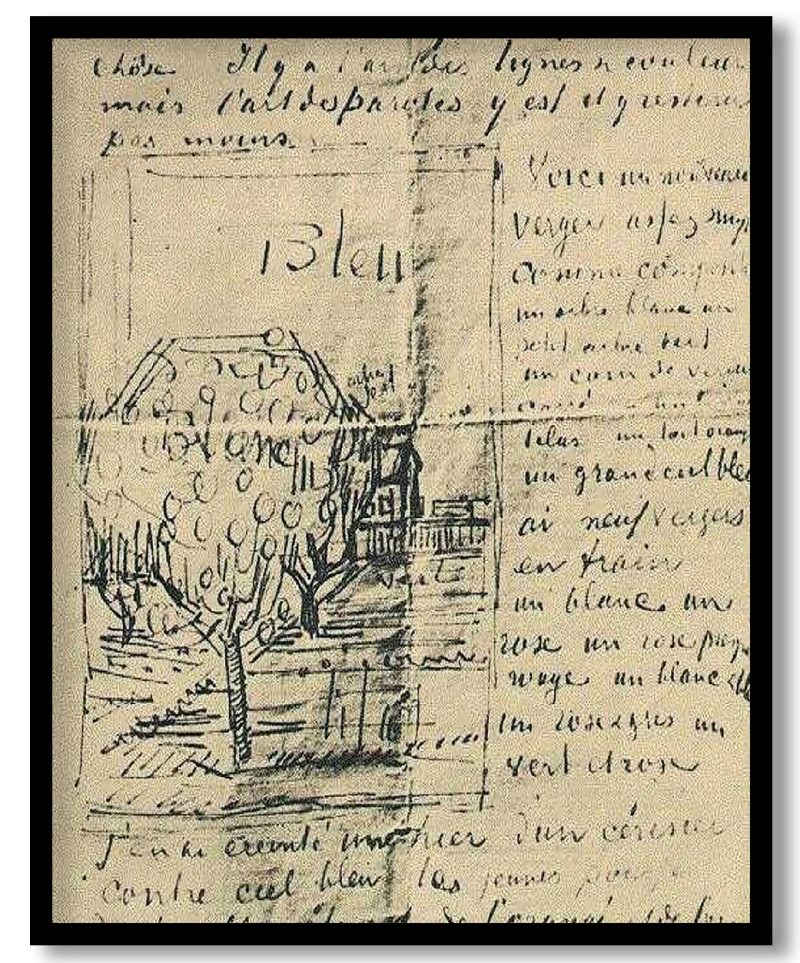 chose Il y a l'art des lignes & couleurs
mais l'art des paroles y est et y restera
pas moins.
Bleu
Voici un nouveau
verger assez simple
comme composition
un arbre blanc un
petit arbre vert
un carré de verdure
lilas un toit orangé
un grand ciel bleu
ai neuf vergers
en train
un blanc un
rose un rose presque
rouge un blanc &
un rose & gris un
vert et rose
blanc
vert
J'en ai éreinté un hier d'un cérisier
contre ciel bleu les jeunes
de l'orangé